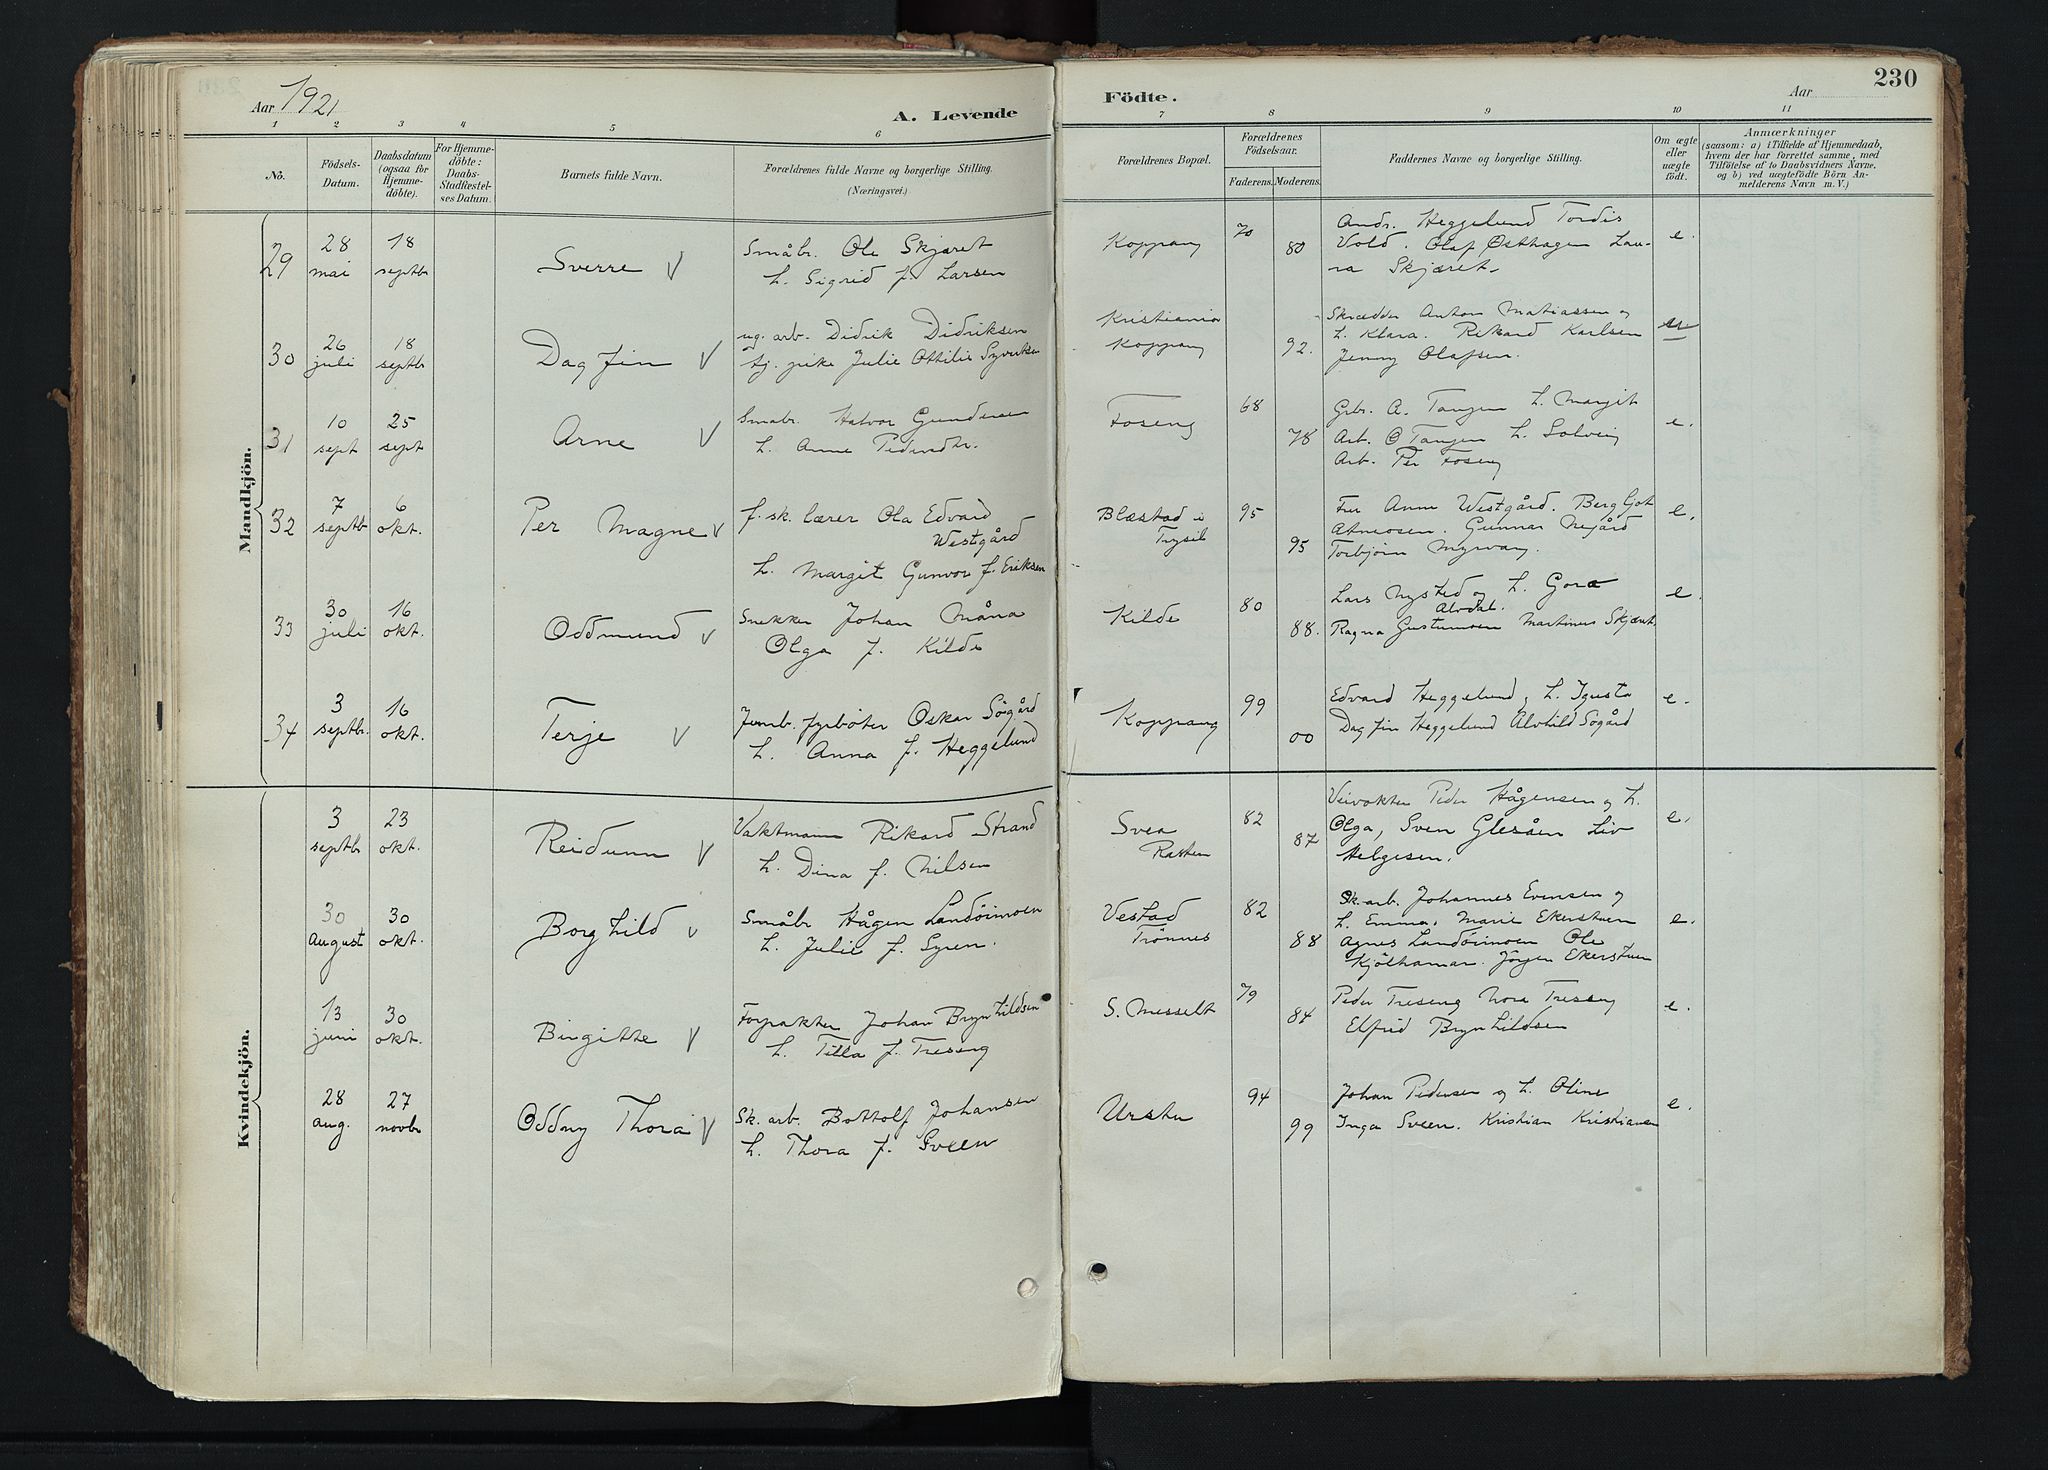 Aar 1921
A. Levende
Födte.
Aar
230
1 2 3 4 5 6 7 8 9 10 11
No.
Födsels-Datum.
Daabsdatum (ogsaa for Hjemme-döbte).
For Hjemme-döbte: Daabs-Stadfæstel-ses Datum.
Barnets fulde Navn.
Forældrenes fulde Navne og borgerlige Stilling.
(Næringsvei.)
Forældrenes Bopæl.
Forældrenes Födselsaar.
Faderens. Moderens.
Faddernes Navne og borgerlige Stilling.
Om ægte eller uægte födt.
Anmærkninger
(saasom: a) i Tilfælde af Hjemmedaab, hvem der har forrettet samme, med Tilföielse af to Daabsvidners Navne, og b) ved uægtefödte Börn An-melderens Navn m. V.)
Mandkjön.
29 28 mai 18 septbr Sverre V
Småbr. Ole Skjæret
h. Sigrid f. Larsen
Koppang 70 80
Andr. Heggelund Tordis
Vold. Olaf Østhagen Lau-
ra Skjæret.
e.
30 26 juli 18 septbr Dagfin V
ug. arb. Didrik Didriksen
tj. pike Julie Ottilie
Kristiania
Koppang 92.
Skrædder Anton Matiassen og
h. Klara. Rikard Karlsen
Jenny Olafsen.
31 10 sept 25 sept Arne V
Småbr. Halvor Gundersen
h. Anne Pedersdtr.
Foseng 68 78
Gbr. A. Tangen h. Margit
Arb. O Tangen h. Solveig
Arb. Per Foseng
e.
32 7 septbr 6 okt. Per Magne V
f. sk. lærer Ola Edvard
Westgård
h. Margit Gunvor f. Eriksen
Blæstad i
Trysil 95 95
Fru Anne Westgård. Bergljot
Atneosen. Gunnar Negård
Torbjørn Myrvang.
e.
33 30 juli 16 okt. Oddmund V
Snekker Johan Måna
Olga f. Kilde
Kilde 80 88.
Lars Nysted og h. Gora
Alvdal.
Ragna Gustumoen Martinus Skjæret.
e.
34 3 septbr. 16 okt. Terje V
Jernb. fyrbøter Oskar Søgård
h. Anna f. Heggelund
Koppang 99 00
Edvard Heggelund, h.
Dagfin Heggelund Alvhild Søgård
e.
Kvindekjön.
3 septbr 23 okt. Reidunn V
Vaktmann Rikard Strand
h. Dina f. Nilsen
Svea
Rasten 82 87
Veivokter Peder Hågensen og h.
Olga, Sven Glesåen Liv
Helgesen.
e.
30 august 30 okt. Borghild V
Småbr Hågen Landörimoen
h. Julie f. Syren.
Vestad
Trönnes 82 88
Sk. arb. Johannes Evensen og
h. Emma. Marie Ekerstuen
Agnes Landörimoen Ole
Kjølhamar. Jörgen Ekerstuen
e.
13 juni 30 okt. Birgitte V
Forpakter Johan Brynhildsen
h. Tilla f. Treseng
S. Messelt 79 84
Peder Treseng Nora Treseng
Elfrid Brynhildsen
e.
28 aug. 27 novbr Oddny Thora V
Sk. arb. Bottolf Johansen
h. Thora f. Sveen
Urstu 94 99
Johan Pedersen og h. Oline
Inga Sveen. Kristian Kristiansen
e.